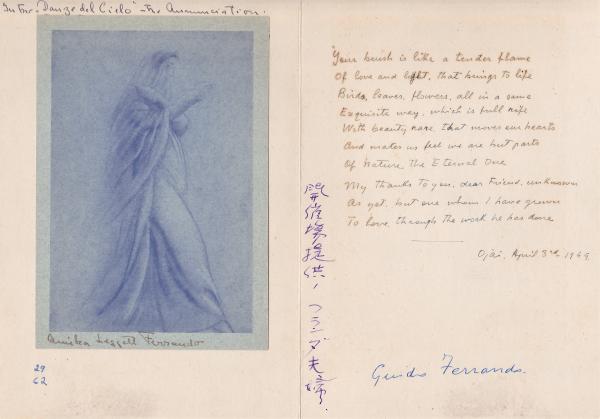 In the "Danze del Cielo" - the Annunciation.
Amiba Leggett Ferrando
29
62
Your brush is like a tender flame
Of love and light, that brings to life
Birds, leaves, flowers, all in a same
Exquisite way, which is full rife
With beauty rare that moves our hearts
And makes us feel we are but parts
Of Nature the Eternal One
My thanks to you, dear Friend, unknown
As yet, but one whom I have grown
To love through the work he has done
Ojai, April 3rd 1969
Guido Ferrando.
開催場提供、フランド夫婦.